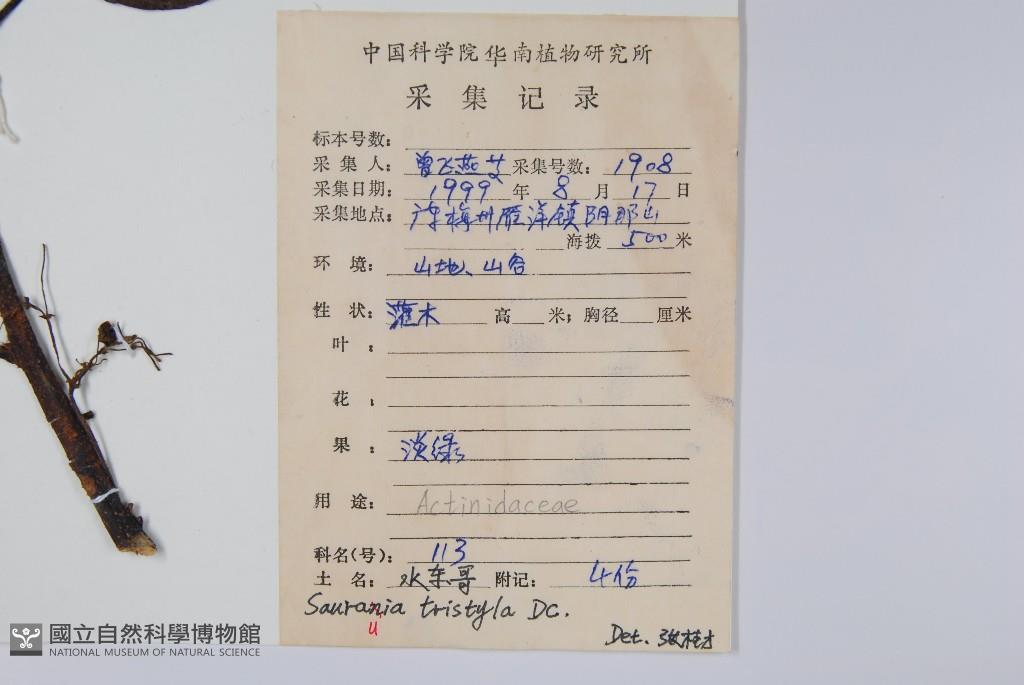 中国科学院华南植物研究所
采集记录
标本号数：
采集人：曾飞燕 采集号数：1908
采集日期：1999年8月17日
采集地点：广东梅州雁洋镇阴那山
海拨 500 米
环境：山地、山谷
性状：灌木 高 米；胸径 厘米
叶：
花：
果：淡绿
用途：Actinidaceae
科名(号)：113
土名：水东哥 附记：4份
Saurania tristyla DC.
u
Det. 张桂才
國立自然科學博物館
NATIONAL MUSEUM OF NATURAL SCIENCE